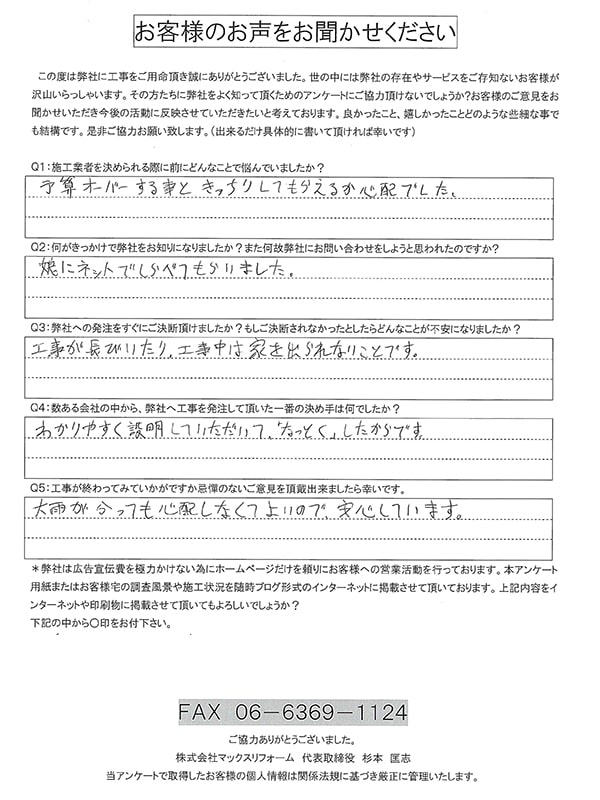 お客様のお声をお聞かせください
この度は弊社に工事をご用命頂き誠にありがとうございました。世の中には弊社の存在やサービスをご存知ないお客様が
沢山いらっしゃいます。その方たちに弊社をよく知って頂くためのアンケートにご協力頂けないでしょうか?お客様のご意見をお
聞かせいただき今後の活動に反映させていただきたいと考えております。良かったこと、嬉しかったことどのような些細な事で
も結構です。是非ご協力お願い致します。(出来るだけ具体的に書いて頂ければ幸いです)
Q1:施工業者を決められる際に前にどんなことで悩んでいましたか?
予算オーバーする事と きっちりしてもらえるか心配でした。
Q2:何がきっかけで弊社をお知りになりましたか?また何故弊社にお問い合わせをしようと思われたのですか?
娘にネットでしらべてもらいました。
Q3:弊社への発注をすぐにご決断頂けましたか?もしご決断されなかったとしたらどんなことが不安になりましたか?
工事が長びいたり、工事中は家を出られないことです。
Q4:数ある会社の中から、弊社へ工事を発注して頂いた一番の決め手は何でしたか?
わかりやすく説明していただいて、"なっとく"したからです
Q5:工事が終わってみていかがですか忌憚のないご意見を頂戴出来ましたら幸いです。
大雨が降っても心配しなくてよいので、安心しています。
*弊社は広告宣伝費を極力かけない為にホームページだけを頼りにお客様への営業活動を行っております。本アンケート
用紙またはお客様宅の調査風景や施工状況を随時ブログ形式のインターネットに掲載させて頂いております。上記内容をイ
ンターネットや印刷物に掲載させて頂いてもよろしいでしょうか?
下記の中から○印をお付下さい。
FAX 06-6369-1124
ご協力ありがとうございました。
株式会社マックスリフォーム 代表取締役 杉本 匡志
当アンケートで取得したお客様の個人情報は関係法規に基づき厳正に管理いたします。